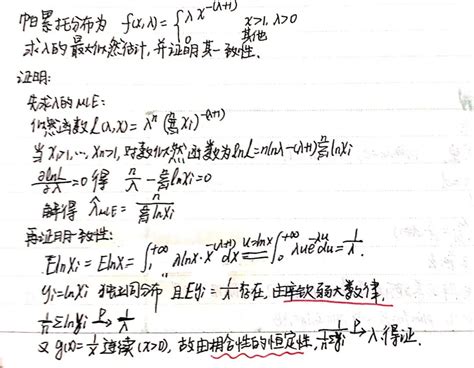 帕累托分布为 f(x,λ)={λx^{-(λ+1)} x>1, λ>0
0 其他
求λ的最大似然估计,并证明其一致性.
证明:
先求λ的MLE:
似然函数L(λ,x)=λ^n(∏_{i=1}^n x_i)^{-(λ+1)}
当x_1>1,…,x_n>1,对数似然函数为lnL=nlnλ-(λ+1)∑_{i=1}^n lnx_i
∂lnL/∂λ=0得 n/λ-∑_{i=1}^n lnx_i=0
解得 λ̂_{MLE}=n/∑_{i=1}^n lnx_i
再证明一致性:
Elnx_i=Elnx=∫_1^{+∞} λlnx·x^{-(λ+1)}dx (u=lnx)= ∫_0^{+∞} λue^{-λu}du=1/λ.
y_i=lnx_i 独立同分布 且Ey_i=1/λ存在,由辛钦弱大数律,
1/n∑lnx_i →^P 1/λ
又 g(x)=1/x连续(x>0),故由相合性的恒定性,1/(1/n∑y_i) →^P λ,得证.